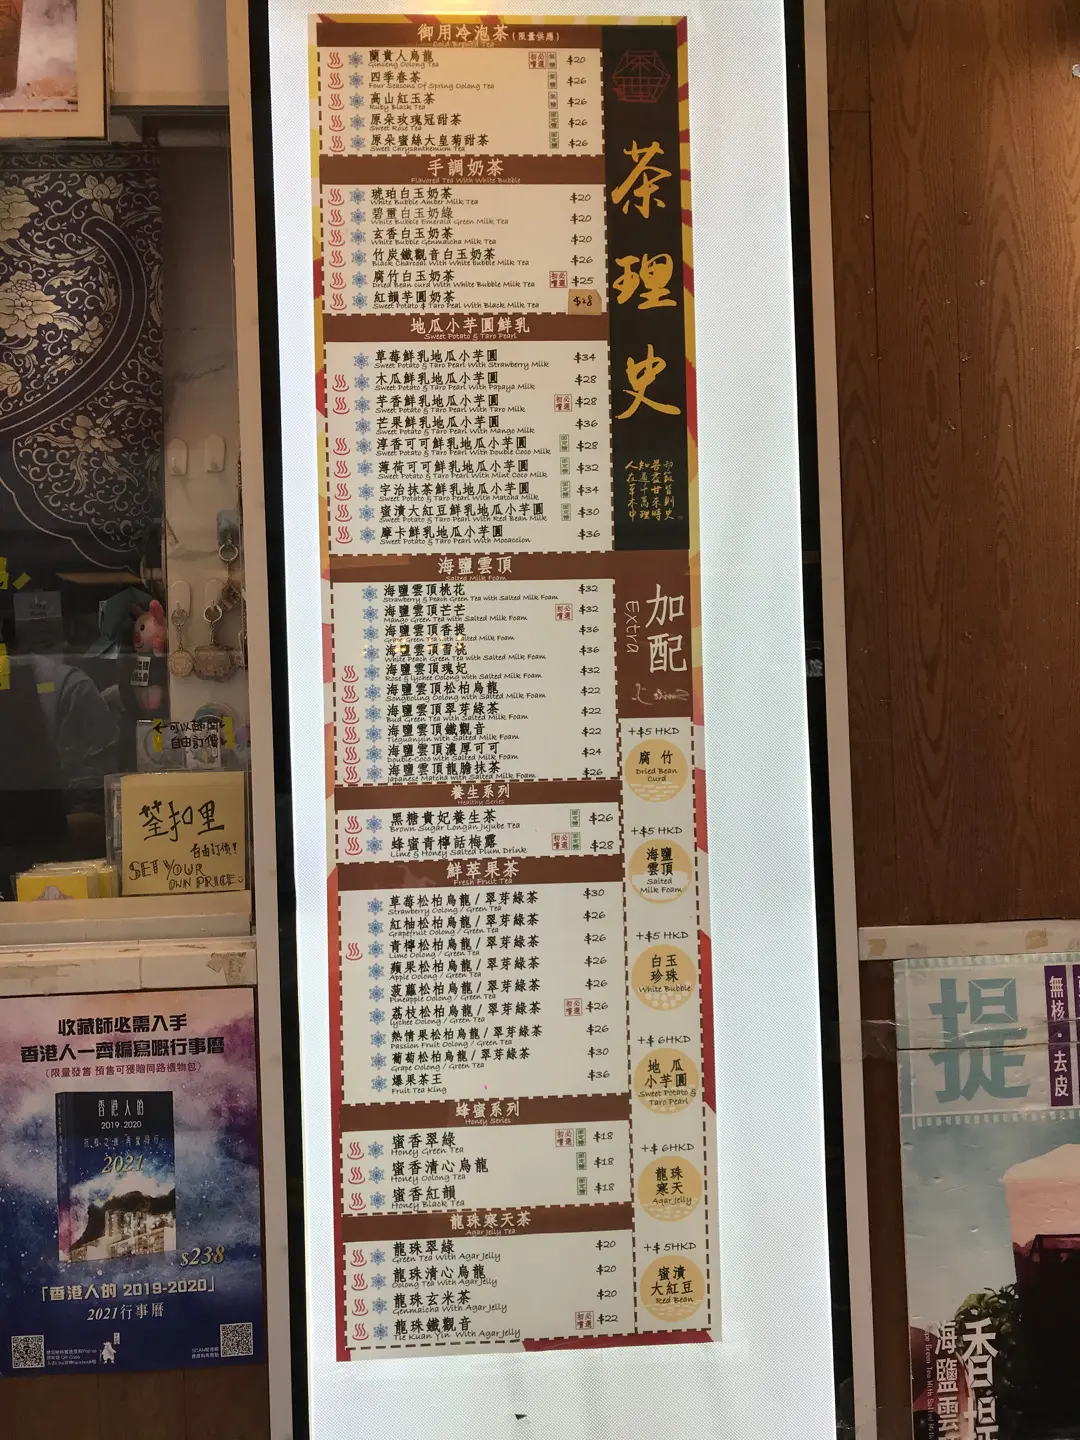 御用冷泡茶(限量供應)
Cold Brewed Tea
蘭貴人烏龍 $20
Ginseng Oolong Tea
四季春茶 $26
Four Seasons Of Spring Oolong Tea
高山紅玉茶 $26
Ruby Black Tea
原朵玫瑰冠甜茶 $26
Sweet Rose Tea
原朵蜜絲大皇菊甜茶 $26
Sweet Chrysanthemum Tea
手調奶茶
Flavored Tea With White Bubble
琥珀白玉奶茶 $20
White Bubble Amber Milk Tea
碧董白玉奶綠 $20
White Bubble Emerald Green Milk Tea
玄香白玉奶茶 $20
White Bubble Genmaicha Milk Tea
竹炭鐵觀音白玉奶茶 $26
Black Charcoal With White bubble Milk Tea
腐竹白玉奶茶 $25
Dried Bean curd With White Bubble Milk Tea
紅韻芋圓奶茶 $28
Sweet Potato & Taro Peal With Black Milk Tea
地瓜小芋圓鮮乳
Sweet Potato & Taro Pearl
草莓鮮乳地瓜小芋圓 $34
Sweet Potato & Taro Pearl With Strawberry Milk
木瓜鮮乳地瓜小芋圓 $28
Sweet Potato & Taro Pearl With Papaya Milk
芋香鮮乳地瓜小芋圓 $28
Sweet Potato & Taro Pearl With Taro Milk
芒果鮮乳地瓜小芋圓 $36
Sweet Potato & Taro Pearl With Mango Milk
淳香可可鮮乳地瓜小芋圓 $28
Sweet Potato & Taro Pearl With Double Coco Milk
薄荷可可鮮乳地瓜小芋圓 $32
Sweet Potato & Taro Pearl With Mint Coco Milk
宇治抹茶鮮乳地瓜小芋圓 $34
Sweet Potato & Taro Pearl With Matcha Milk
蜜漬大紅豆鮮乳地瓜小芋圓 $30
Sweet Potato & Taro Pearl With Red Bean Milk
摩卡鮮乳地瓜小芋圓 $36
Sweet Potato & Taro Pearl With Mocaccion
海鹽雲頂
Salted Milk Foam
海鹽雲頂桃花 $32
Strawberry & Peach Green Tea with Salted Milk Foam
海鹽雲頂芒芒 $32
Mango Green Tea with Salted Milk Foam
海鹽雲頂香提 $36
Grape Green Tea with Salted Milk Foam
海鹽雲頂雪桃 $36
White Peach Green Tea with Salted Milk Foam
海鹽雲頂瑰妃 $32
Rose & lychee Oolong with Salted Milk Foam
海鹽雲頂松柏烏龍 $22
Songboling Oolong with Salted Milk Foam
海鹽雲頂翠芽綠茶 $22
Bud Green Tea with Salted Milk Foam
海鹽雲頂鐵觀音 $22
Tieguanyin with Salted Milk Foam
海鹽雲頂濃厚可可 $24
Double-Coco with Salted Milk Foam
海鹽雲頂龍膽抹茶 $26
Japanese Matcha with Salted Milk Foam
養生系列
Healthy Series
黑糖貴妃養生茶 $26
Brown Sugar Longan Jujube Tea
蜂蜜青檸話梅露 $28
Lime & Honey Salted Plum Drink
鮮萃果茶
Fresh Fruit Tea
草莓松柏烏龍/翠芽綠茶 $30
Strawberry Oolong / Green Tea
紅柚松柏烏龍/翠芽綠茶 $26
Grapefruit Oolong / Green Tea
青檸松柏烏龍/翠芽綠茶 $26
Lime Oolong / Green Tea
蘋果松柏烏龍/翠芽綠茶 $26
Apple Oolong / Green Tea
菠蘿松柏烏龍/翠芽綠茶 $26
Pineapple Oolong / Green Tea
荔枝松柏烏龍/翠芽綠茶 $26
lychee Oolong / Green Tea
熱情果松柏烏龍/翠芽綠茶 $26
Passion Fruit Oolong / Green Tea
葡萄松柏烏龍/翠芽綠茶 $30
Grape Oolong / Green Tea
爆果茶王 $36
Fruit Tea King
蜂蜜系列
Honey Series
蜜香翠綠 $18
Honey Green Tea
蜜香清心烏龍 $18
Honey Oolong Tea
蜜香紅韻 $18
Honey Black Tea
龍珠寒天茶
Agar Jelly Tea
龍珠翠綠 $20
Green Tea With Agar Jelly
龍珠清心烏龍 $20
Oolong Tea With Agar Jelly
龍珠玄米茶 $20
Genmaicha With Agar Jelly
龍珠鐵觀音 $22
Tie Kuan Yin With Agar Jelly
茶理史
加配
Extra
+$5 HKD
腐竹
Dried Bean
Curd
+$5 HKD
海鹽
雲頂
Salted
Milk Foam
+$5 HKD
白玉
珍珠
White Bubble
+$6HKD
地瓜
小芋圓
Sweet Potato &
Taro Pearl
+$6HKD
龍珠
寒天
Agar Jelly
+$5HKD
蜜漬
大紅豆
Red Bean
自由訂價
荃扣里
自由訂價!
SET YOUR
OWN PRICE
收藏師必需入手
香港人一齊編寫嘅行事曆
(限量發售 預售可獲贈同路禮物包)
香港人的
2019-2020
2021
$238
「香港人的 2019-2020」
2021行事曆
提
無核・去皮
海鹽雲
香提